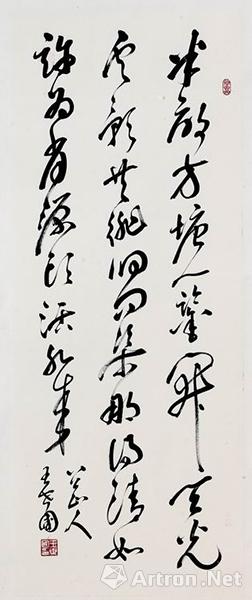 半亩方塘一鉴开天光
云影共徘徊问渠那得清如
许为有源头活水来
雅昌艺术网
Artron.Net